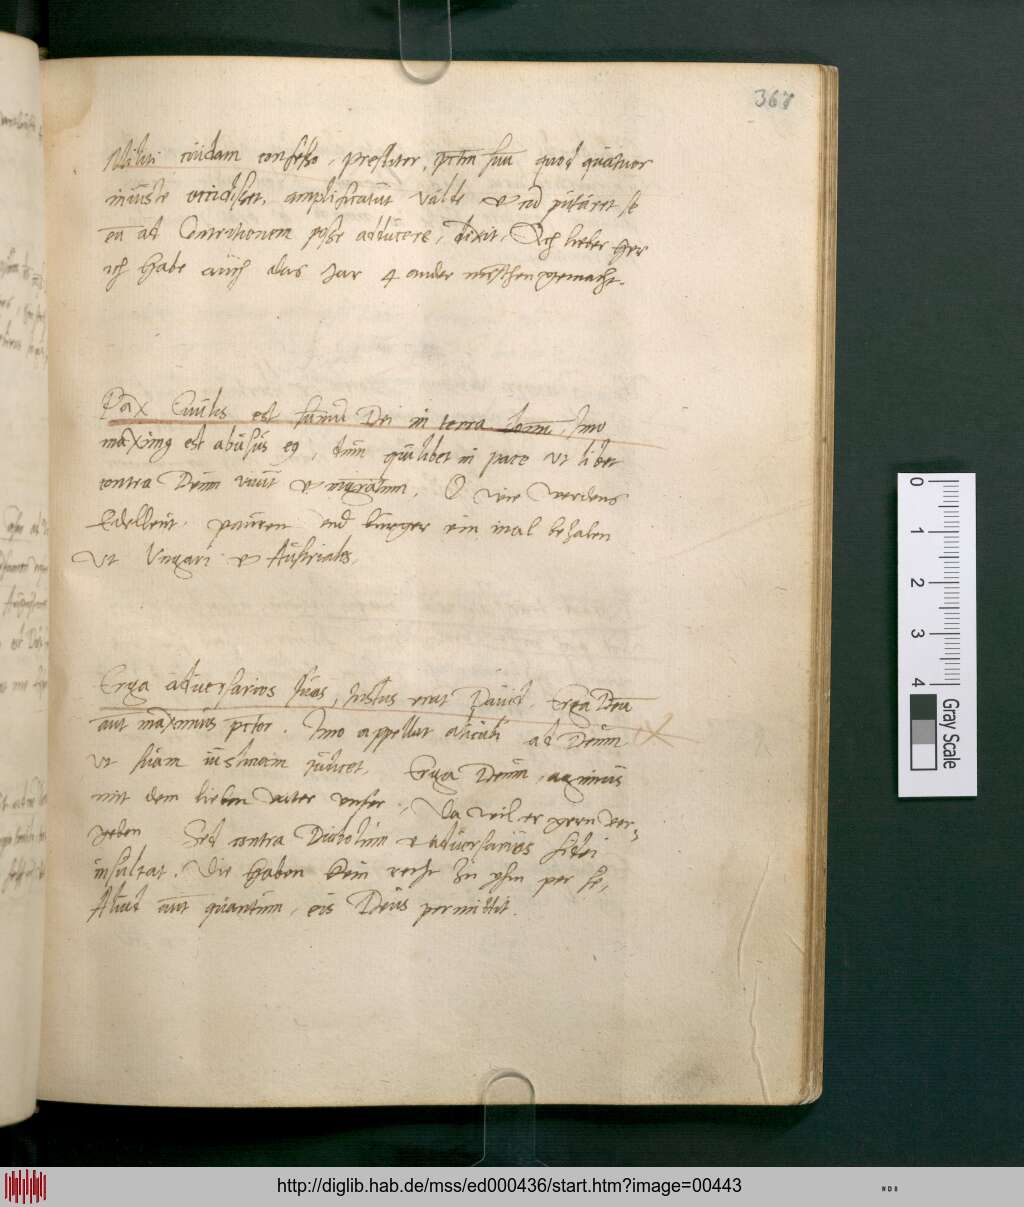 367
Militi cuidam confesso, presbiter, pctm suu quod quatuor
iniuste occidisset, amplificabat valde et cum putaret se
eu ad Contritionem posse adducere, dixit, Ach lieber Her
ich habe auch das Jar 4 ander menschen gemacht.
Pax Ciuilis est sumu Dei in terra bonu, Imo
maximus est abusus eius, dum quilibet in pace vt libet
contra Deum viuit et ingratum. O wie werdens
Edelleut, pauren vnd burger ein mal bezalen
vt Vngari et Austriales.
Erga aduersarios suos, Iustus erat Dauid. Erga Deu
aut maximus pctor. Imo appellat alicubi ad Deum
vt suam iusticiam iudicet. Erga Deum, agimus
mit dem lieben vater vnser. Da wil er gern ver-
geben Sed contra Diabolum et aduersarios fidei
insultat. Die haben kein recht zu yhm per se,
Aliud aut quantum, eis Deus permittit.
0 1 2 3 4
Gray Scale
http://diglib.hab.de/mss/ed000436/start.htm?image=00443